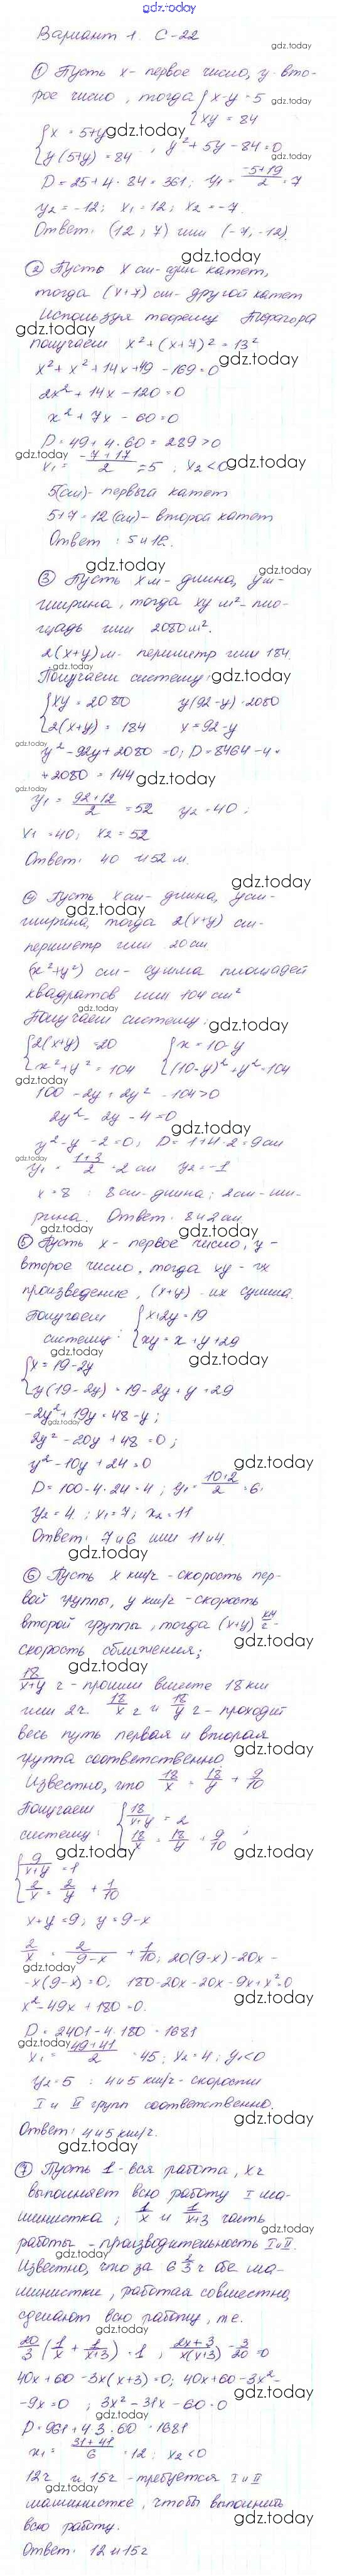 gdz.today
Вариант 1 С-22
① Пусть x - первое число, y - вто-
рое число, тогда { x-y = 5
xy = 84
{ x = 5+y
y(5+y) = 84 , y² + 5y - 84 = 0
D = 25 + 4·84 = 361; y₁ = (-5+19)/2 = 7
y₂ = -12; x₁ = 12; x₂ = -7.
Ответ: (12; 7) или (-7; -12).
② Пусть x см - один катет,
тогда (x+7) см - другой катет
Используя теорему Пифагора
получаем x² + (x+7)² = 13²
x² + x² + 14x + 49 - 169 = 0
2x² + 14x - 120 = 0
x² + 7x - 60 = 0
D = 49 + 4·60 = 289 > 0
x₁ = (-7+17)/2 = 5 ; x₂ < 0
5(см) - первый катет
5+7 = 12 (см) - второй катет
Ответ: 5 и 12.
③ Пусть x м - длина, y м -
ширина, тогда xy м² - пло-
щадь или 2080 м².
2(x+y) м - периметр или 184.
Получаем систему:
{ xy = 2080 y(92-y) = 2080
2(x+y) = 184 x = 92-y
y² - 92y + 2080 = 0; D = 8464 - 4·
·2080 = 144
y₁ = (92+12)/2 = 52 y₂ = 40;
x₁ = 40; x₂ = 52
Ответ: 40 и 52 м.
④ Пусть x см - длина, y см -
ширина, тогда 2(x+y) см -
периметр или 20 см
(x²+y²) см - сумма площадей
квадратов или 104 см²
Получаем систему:
{ 2(x+y) = 20 { x = 10-y
x² + y² = 104 (10-y)² + y² = 104
2y² - 2y - 4 = 0
y² - y - 2 = 0; D = 1+4·2 = 9 см
y₁ = (1+3)/2 = 2 см y₂ = -1
x = 8 : 8 см - длина; 2 см - ши-
рина. Ответ: 8 и 2 см
⑤ Пусть x - первое число, y -
второе число, тогда xy - их
произведение, (x+y) - их сумма.
Получаем { x+2y = 19
систему: xy = x + y + 29
{ x = 19-2y
y(19-2y) = 19-2y + y + 29
-2y² + 19y = 48 - y;
2y² - 20y + 48 = 0;
y² - 10y + 24 = 0
D = 100 - 4·24 = 4; y₁ = (10+2)/2 = 6;
y₂ = 4; x₁ = 7; x₂ = 11
Ответ: 7 и 6 или 11 и 4.
⑥ Пусть x км/ч - скорость пер-
вой группы, y км/ч - скорость
второй группы, тогда (x+y) км/ч -
скорость сближения;
18/(x+y) ч - прошли вместе 18 км
или 2ч. 18/x ч и 18/y ч - проходит
весь путь первая и вторая
группа соответственно
Известно, что 18/x = 18/y + 9/10
Получаем { 18/(x+y) = 2
систему: 18/x = 18/y + 9/10 ;
{ 9/(x+y) = 1
2/x = 2/y + 1/10
x+y = 9; y = 9-x
2/x = 2/(9-x) + 1/10; 20(9-x) - 20x -
-x(9-x) = 0; 180-20x-20x-9x+x² = 0
x² - 49x + 180 = 0.
D = 2401 - 4·180 = 1681
x₁ = (49+41)/2 = 45; x₂ = 4; y₁ < 0
y₂ = 5 : 4 и 5 км/ч - скорости
I и II групп соответственно.
Ответ: 4 и 5 км/ч.
⑦ Пусть 1 - вся работа, x ч
выполняет всю работу I ма-
шинистка; 1/x и 1/(x+3) часть
работы - производительность I и II.
Известно, что за 6 2/3 ч обе ма-
шинистки, работая совместно,
сделают всю работу, т.е.
20/3 (1/x + 1/(x+3)) = 1 ; (2x+3)/(x(x+3)) - 3/20 = 0
40x + 60 - 3x(x+3) = 0; 40x + 60 - 3x² -
-9x = 0 ; 3x² - 31x - 60 = 0
D = 961 + 4·3·60 = 1681
x₁ = (31+41)/6 = 12; x₂ < 0
12ч и 15ч - требуется I и II
машинистке, чтобы выполнить
всю работу.
Ответ: 12 и 15ч